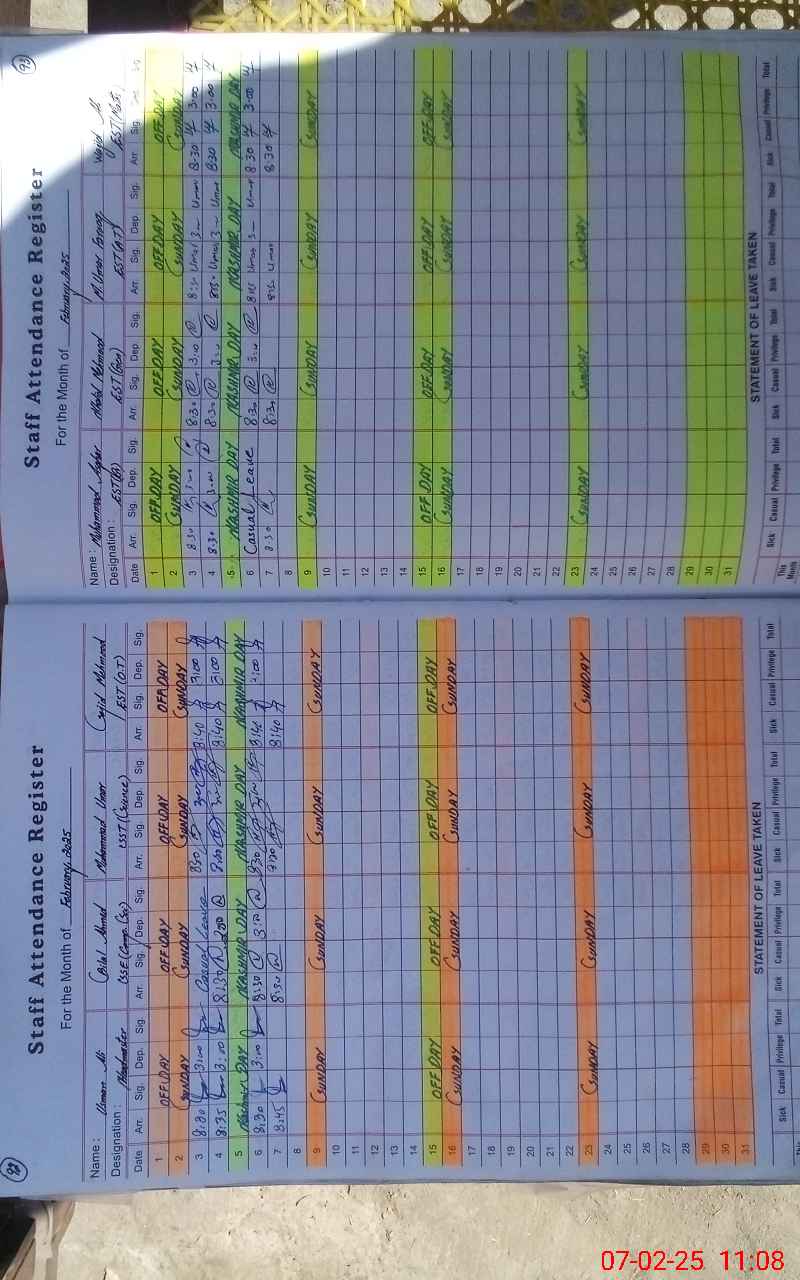 92
Staff Attendance Register
For the Month of February, 2025
Name : Usman Ali Bilal Ahmed Muhammad Umar Sajid Mehmood
Designation : Headmaster SSE (Comp. Sci) SST (Science) EST (D.T)
Date Arr. Sig. Dep. Sig. Arr. Sig. Dep. Sig. Arr. Sig. Dep. Sig. Arr. Sig. Dep. Sig.
1 OFF.DAY OFF.DAY OFF.DAY OFF.DAY
2 SUNDAY SUNDAY SUNDAY SUNDAY
3 8:30 3:00 Casual Leave 8:30 3:00 8:40 3:00
4 8:35 3:00 8:30 8:30 3:00 8:40 3:00
5 KASHMIR DAY KASHMIR DAY KASHMIR DAY KASHMIR DAY
6 8:30 3:00 8:30 3:00 8:30 3:00 8:40 3:00
7 8:45 8:30 8:30 8:40
8
9 SUNDAY SUNDAY SUNDAY SUNDAY
10
11
12
13
14
15 OFF.DAY OFF.DAY OFF.DAY OFF.DAY
16 SUNDAY SUNDAY SUNDAY SUNDAY
17
18
19
20
21
22
23 SUNDAY SUNDAY SUNDAY SUNDAY
24
25
26
27
28
29
30
31
STATEMENT OF LEAVE TAKEN
Sick Casual Privilege Total Sick Casual Privilege Total Sick Casual Privilege Total Sick Casual Privilege Total
93
Staff Attendance Register
For the Month of February, 2025
Name : Muhammad Khalid Mehmood M. Umar Farooq Wajid Ali
Designation : EST EST (Gen) EST (A.T) EST
Date Arr. Sig. Dep. Sig. Arr. Sig. Dep. Sig. Arr. Sig. Dep. Sig. Arr. Sig.
1 OFF.DAY OFF.DAY OFF.DAY OFF.DAY
2 SUNDAY SUNDAY SUNDAY SUNDAY
3 8:30 3:00 8:30 3:00 8:15 Umar 3 Umar 8:30 3:00
4 8:30 3:00 8:30 3:00 8:15 Umar 3 Umar 8:30 3:00
5 KASHMIR DAY KASHMIR DAY KASHMIR DAY KASHMIR DAY
6 Casual Leave 8:30 3:00 8:15 Umar 3 Umar 8:30 3:00
7 8:30 8:30 8:15 Umar 8:30
8
9 SUNDAY SUNDAY SUNDAY SUNDAY
10
11
12
13
14
15 OFF.DAY OFF.DAY OFF.DAY OFF.DAY
16 SUNDAY SUNDAY SUNDAY SUNDAY
17
18
19
20
21
22
23 SUNDAY SUNDAY SUNDAY SUNDAY
24
25
26
27
28
29
30
31
STATEMENT OF LEAVE TAKEN
Sick Casual Privilege Total Sick Casual Privilege Total Sick Casual Privilege Total Sick Casual Privilege Total
This Month
07-02-25 11:08